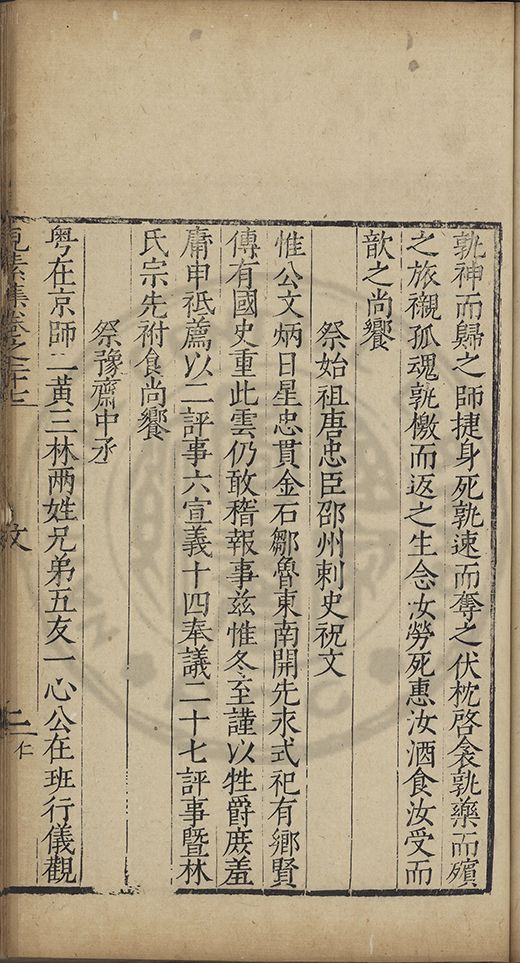 孰神而歸之師捷身死孰速而奪之伏枕啓衾孰藥而殯
之旅櫬孤魂孰檄而返之生念汝勞死惠汝酒食汝受而
歆之尚饗
祭始祖唐忠臣邵州刺史祝文
惟公文炳日星忠貫金石鄒魯東南開先求式祀有鄉賢
傳有國史重此雲仍敢稽報事兹惟冬至謹以牲爵庶羞
庸申祗薦以二評事六宣義十四奉議二十七評事暨林
氏宗先祔食尚饗
祭豫齋中丞
粤在京師二黃三林兩姓兄弟五友一心公在班行儀觀
見素集卷之二十七
文
二
仁